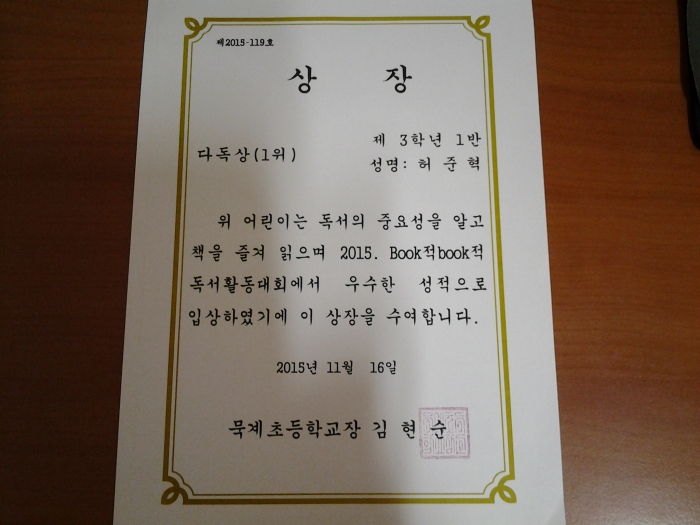 제2015-119호
상 장
다독상(1위)
제 3학년 1반
성명: 허 준 혁
위 어린이는 독서의 중요성을 알고
책을 즐겨 읽으며 2015. Book적book적
독서활동대회에서 우수한 성적으로
입상하였기에 이 상장을 수여합니다.
2015년 11월 16일
묵계초등학교장 김 현 순